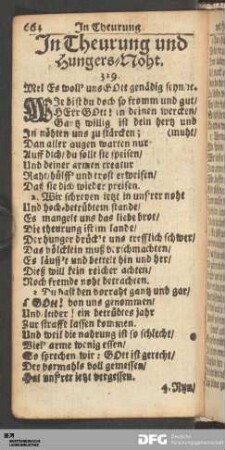 664 In Theurung
In Theurung und
Hungers-Noht.
329.
Mel Es woll' uns GOtt genädig seyn/ꝛc.
WIe bist du doch so fromm und gut/
HErr GOtt! in deinen wercken/
Gantz willig ist dein hertz und
In nöhten uns zu stärcken; (muht/
Dan aller augen warten nur
Auff dich/ du sollt sie speisen/
Und deiner armen creatur
Raht/ hülff' und trost erweisen/
Daß sie dich wieder preisen.
2. Wir schreyen jetzt in unsrer noht
Und hoch-betrübtem stande/
Es mangelt uns das liebe brot/
Die theurung ist im lande/
Der hunger drückt uns trefflich schwer/
Das völcklein muß verschmachten/
Es läufft und bettelt hin und her/
Dieß will kein reicher achten/
Noch fremde noht betrachten.
3. Du hast den vorraht gantz und gar/
O GOtt! von uns genommen/
Und leider! ein betrübtes jahr
Zur straffe lassen kommen.
Und weil die nahrung ist so schlecht/
Viel' arme wenig essen/
So sprechen wir: GOtt ist gerecht/
Der vormahls voll gemessen/
Hat unsrer jetzt vergessen.
4. Nun/
DFG Deutsche
Forschungsgemeinschaft